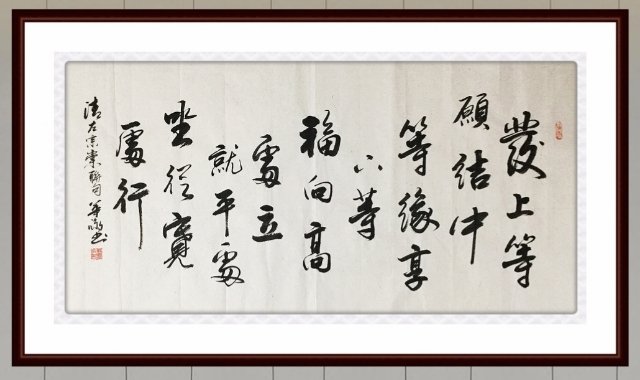 發上等
願結中
等緣享
下等
福向高
處立
就平處
坐從寬
處行
清左宗棠聯句 书